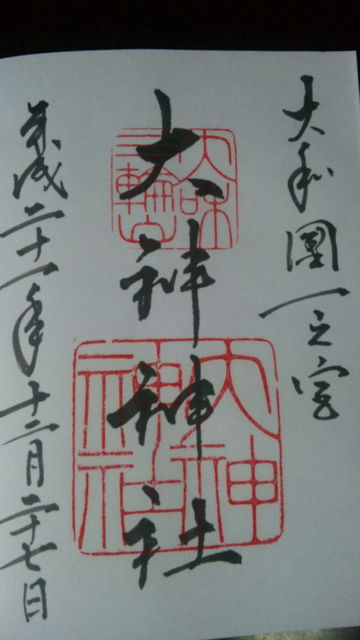 大和國一之宮
大神神社
平成二十一年十二月二十七日
三輪
大神神社